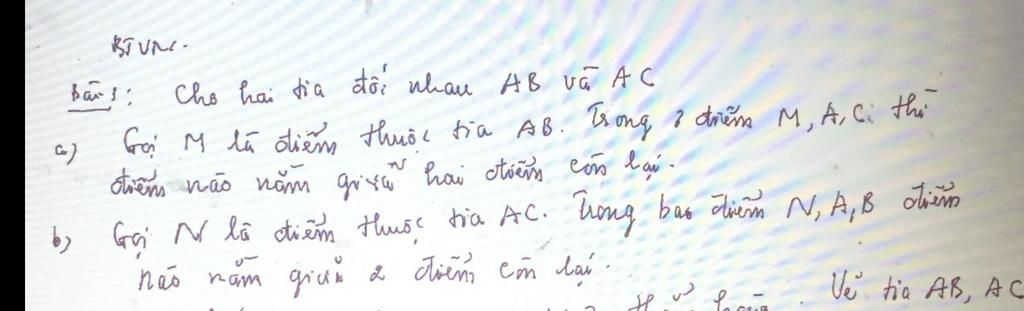 BTVN.
Bài 1: Cho hai tia đối nhau AB và AC
a) Gọi M là điểm thuộc tia AB. Trong 3 điểm M, A, C thì
điểm nào nằm giữa hai điểm còn lại.
b) Gọi N là điểm thuộc tia AC. Trong ba điểm N, A, B điểm
nào nằm giữa 2 điểm còn lại.
Vẽ tia AB, AC